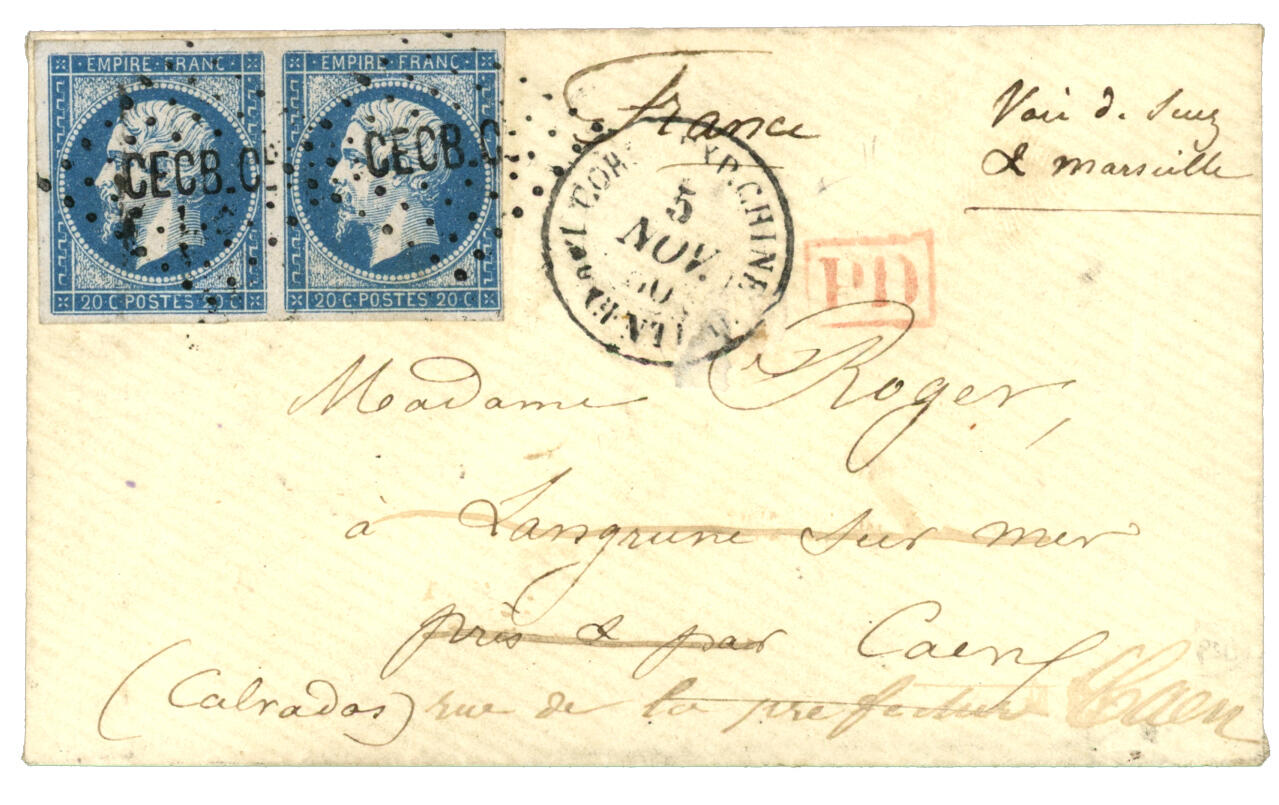 EMPIRE · FRANC · EMPIRE · FRANC ·
CECB.C CECB.C
20 C · POSTES · 20 C 20 C · POSTES · 20 C
France
Voie de Suez
& Marseille
EXP. CHINE
5
NOV.
60
PD
Madame Roger,
à Langrune sur mer
près & par Caen
(Calvados) rue de la prefecture Caen